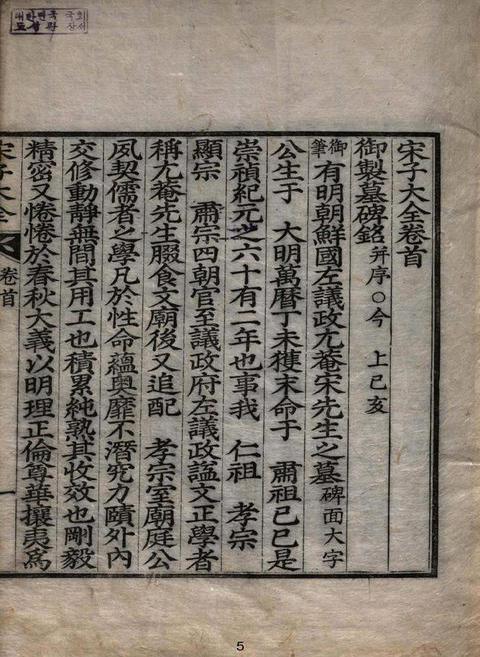 대한민국 국회
도서관 장서
宋子大全卷首
御製墓碑銘 幷序○今 上己亥
御筆 有明朝鮮國左議政尤菴宋先生之墓 碑面大字
公生于 大明萬曆丁未獲末命于 肅祖己巳是
崇禎紀元之六十有二年也事我 仁祖 孝宗
顯宗 肅宗四朝官至議政府左議政謚文正學者
稱尤菴先生腏食文廟後又追配 孝宗室廟庭公
夙契儒者之學凡於性命蘊奧靡不潛究力賾外內
交修動靜無間其用工也積累純熟其收效也剛毅
精密又惓惓於春秋大義以明理正倫尊華攘夷爲
宋子大全 卷首 一
5